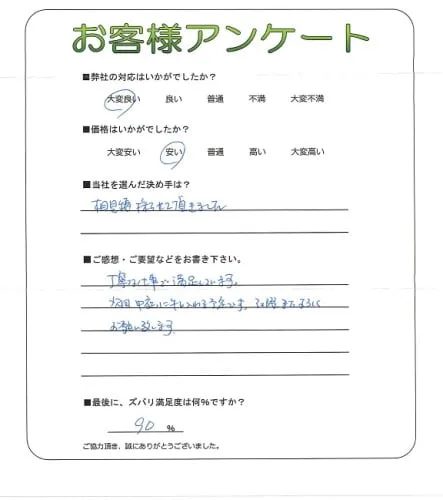 お客様アンケート
■弊社の対応はいかがでしたか？
大変良い 良い 普通 不満 大変不満
■価格はいかがでしたか？
大変安い 安い 普通 高い 大変高い
■当社を選んだ決め手は？
相見積 させて頂きました
■ご感想・ご要望などをお書き下さい。
丁寧な仕事で満足しています。
次回 に 予定です。その際またよろしく
お願い致します
■最後に、ズバリ満足度は何%ですか？
90 %
ご協力頂き、誠にありがとうございました。